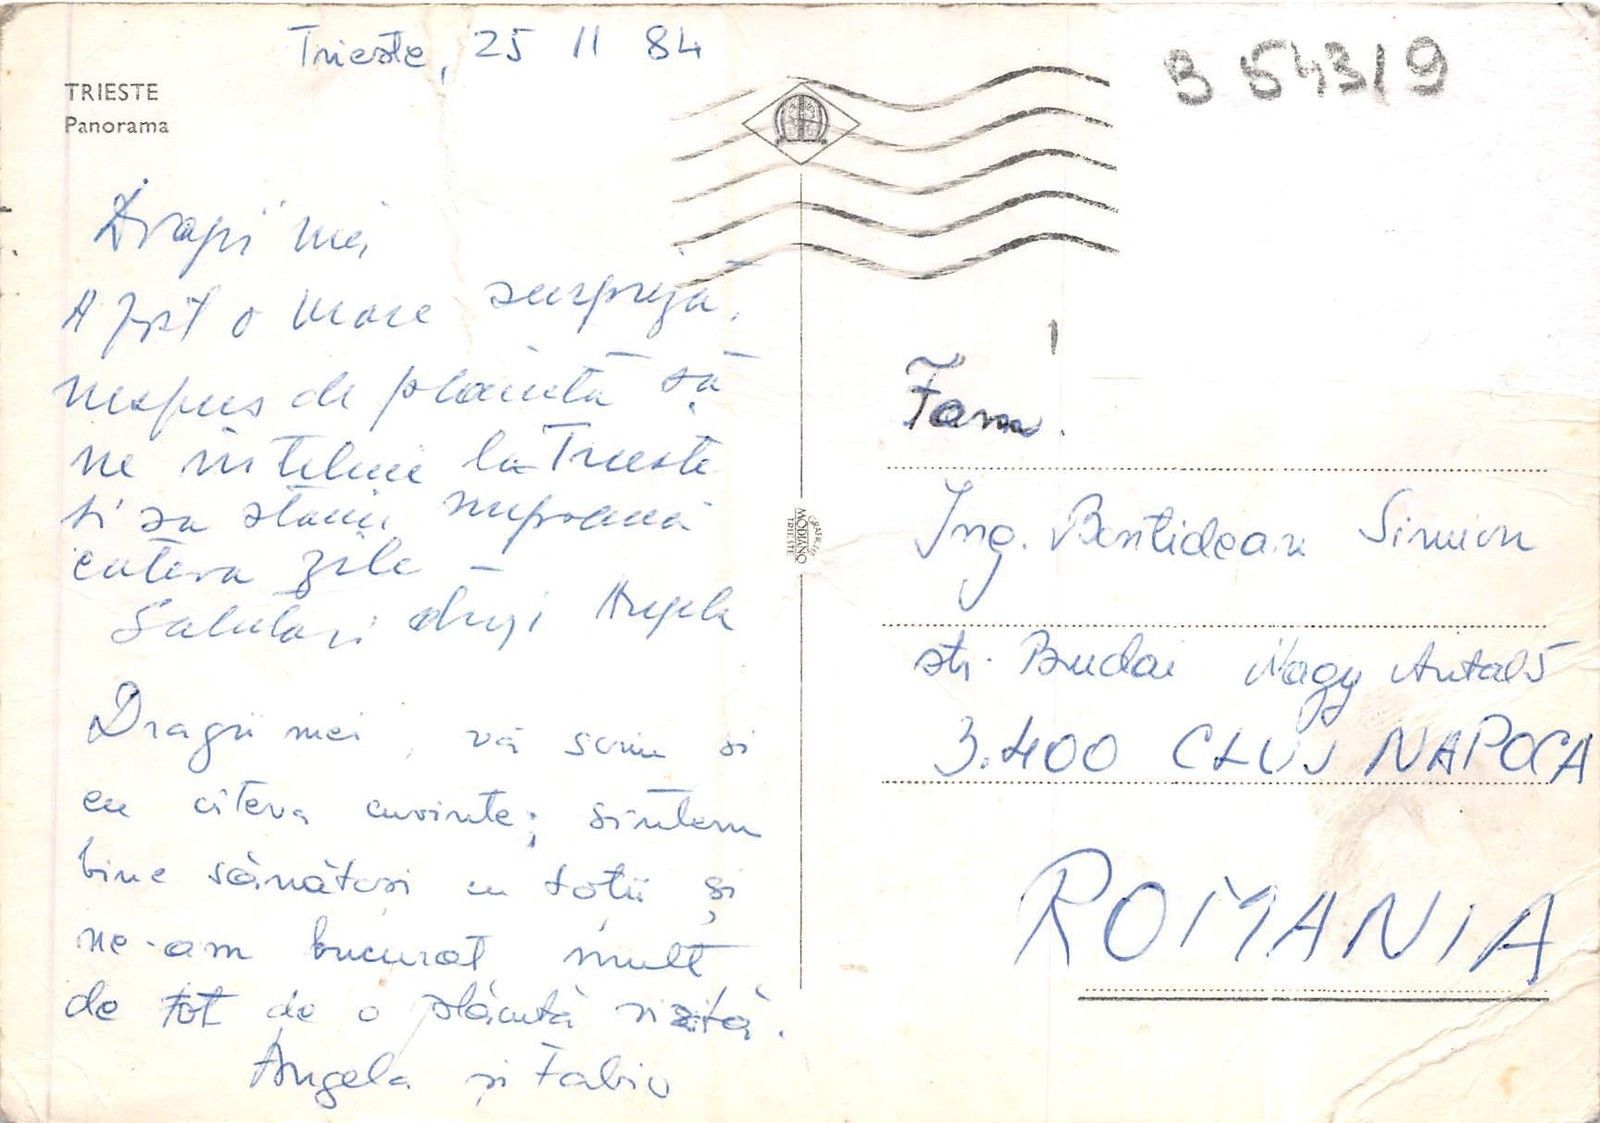 Trieste, 25 11 84
B 543/9
TRIESTE
Panorama
Dragii mei
A fost o mare surpriza,
nespus de plăcută să
ne intilnim la Trieste
si sa stam impreună
cateva zile -
Salutari dragi Angela
Dragii mei, vă scriu si
eu citeva cuvinte; sintem
bine sănătosi cu totii și
ne-am bucurat mult
de tot de o plăcută vizită.
Angela și Fabio
GRAFICHE
MODIANO
TRIESTE
Fam.
Ing. Bontidean Simion
str. Budai Nagy Antal 5
3.400 CLUJ NAPOCA
ROMANIA